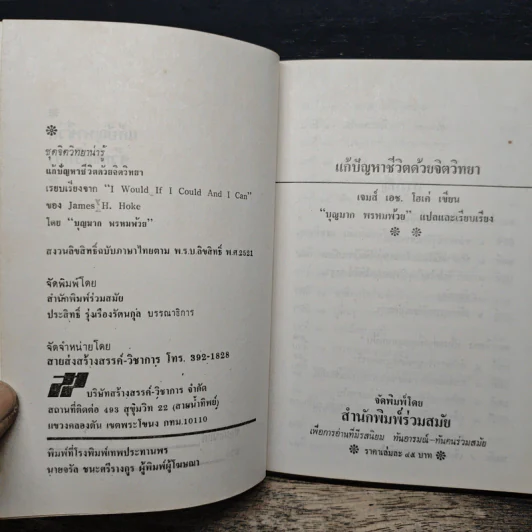 ชุดจิตวิทยาน่ารู้
แก้ปัญหาชีวิตด้วยจิตวิทยา
เรียบเรียงจาก "I Would If I Could And I Can"
ของ James H. Hoke
โดย "บุญมาก พรหมพ้วย"
สงวนลิขสิทธิ์ฉบับภาษาไทยตาม พ.ร.บ.ลิขสิทธิ์ พ.ศ.2521
จัดพิมพ์โดย
สำนักพิมพ์ร่วมสมัย
ประสิทธิ์ รุ่งเรืองรัตนกุล บรรณาธิการ
จัดจำหน่ายโดย
สายส่งสร้างสรรค์-วิชาการ โทร. 392-1828
บริษัทสร้างสรรค์-วิชาการ จำกัด
สถานที่ติดต่อ 493 สุขุมวิท 22 (สายน้ำทิพย์)
แขวงคลองตัน เขตพระโขนง กทม.10110
พิมพ์ที่โรงพิมพ์เทพประทานพร
นายจรัล ชนะศรีรางกูร ผู้พิมพ์ผู้โฆษณา
แก้ปัญหาชีวิตด้วยจิตวิทยา
เจมส์ เอช. โฮเค่ เขียน
"บุญมาก พรหมพ้วย" แปลและเรียบเรียง
จัดพิมพ์โดย
สำนักพิมพ์ร่วมสมัย
เพื่อการอ่านที่มีรสนิยม ทันอารมณ์-ทันคนร่วมสมัย
ราคาเล่มละ ๔๕ บาท